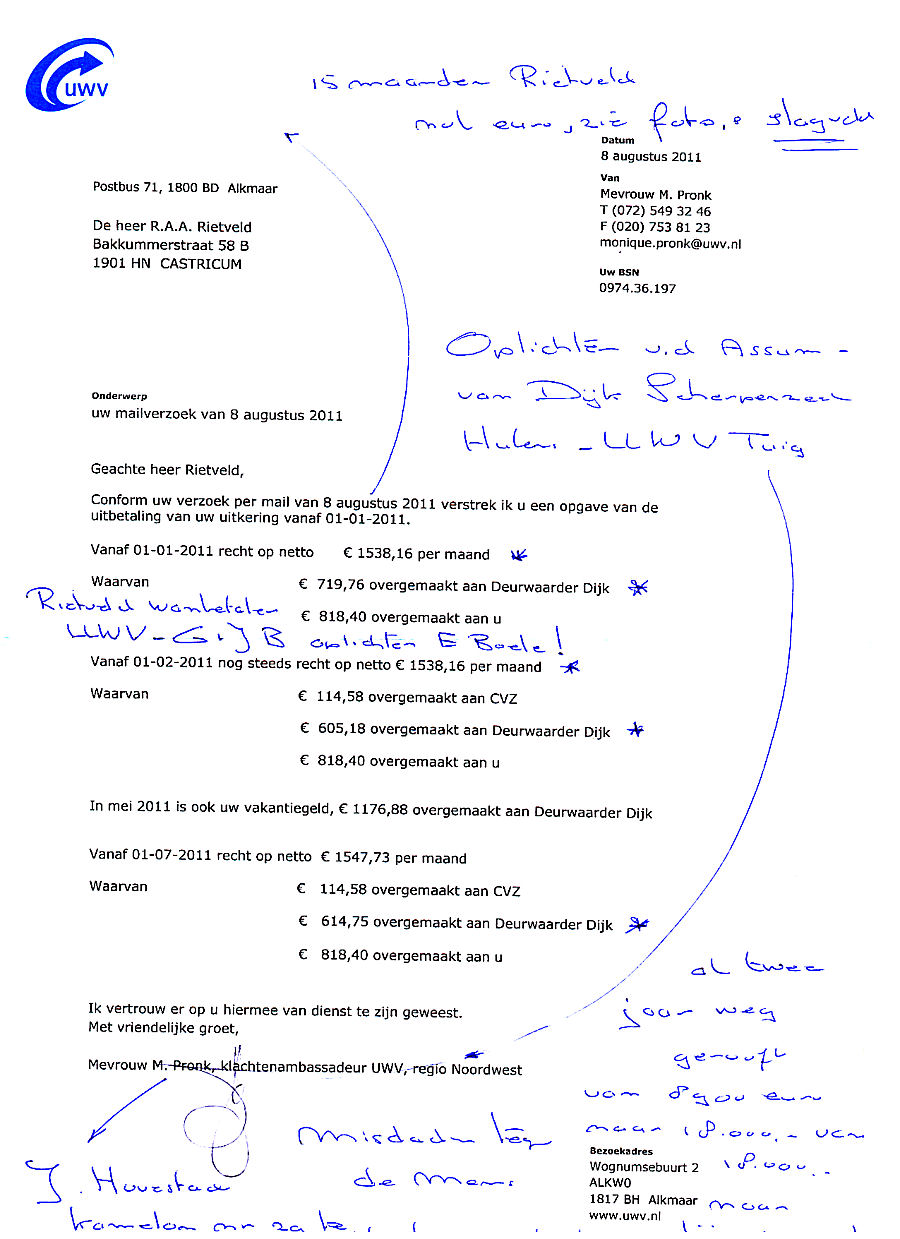 uwv
15 maanden Rietveld
nul euro, zie foto,s
Datum
8 augustus 2011
Van
Mevrouw M. Pronk
T (072) 549 32 46
F (020) 753 81 23
monique.pronk@uwv.nl
Uw BSN
0974.36.197
Postbus 71, 1800 BD Alkmaar
De heer R.A.A. Rietveld
Bakkummerstraat 58 B
1901 HN CASTRICUM
Oplichten v.d Assum -
van Dijk Scherpenzeel
- UWV Tuig
Onderwerp
uw mailverzoek van 8 augustus 2011
Geachte heer Rietveld,
Conform uw verzoek per mail van 8 augustus 2011 verstrek ik u een opgave van de
uitbetaling van uw uitkering vanaf 01-01-2011.
Vanaf 01-01-2011 recht op netto € 1538,16 per maand
Waarvan € 719,76 overgemaakt aan Deurwaarder Dijk
Rietveld wanbetaler
€ 818,40 overgemaakt aan u
UWV - oplichten E Boele!
Vanaf 01-02-2011 nog steeds recht op netto € 1538,16 per maand
Waarvan € 114,58 overgemaakt aan CVZ
€ 605,18 overgemaakt aan Deurwaarder Dijk
€ 818,40 overgemaakt aan u
In mei 2011 is ook uw vakantiegeld, € 1176,88 overgemaakt aan Deurwaarder Dijk
Vanaf 01-07-2011 recht op netto € 1547,73 per maand
Waarvan € 114,58 overgemaakt aan CVZ
€ 614,75 overgemaakt aan Deurwaarder Dijk
€ 818,40 overgemaakt aan u
al twee
jaar weg
geroofd
van 8900 euro
naar 18.000,- van
18.000,-
naar
Ik vertrouw er op u hiermee van dienst te zijn geweest.
Met vriendelijke groet,
Mevrouw M. Pronk, klachtenambassadeur UWV, regio Noordwest
Misdaden tegen
de Mens
J. Hoverstad
Bezoekadres
Wognumsebuurt 2
ALKW0
1817 BH Alkmaar
www.uwv.nl